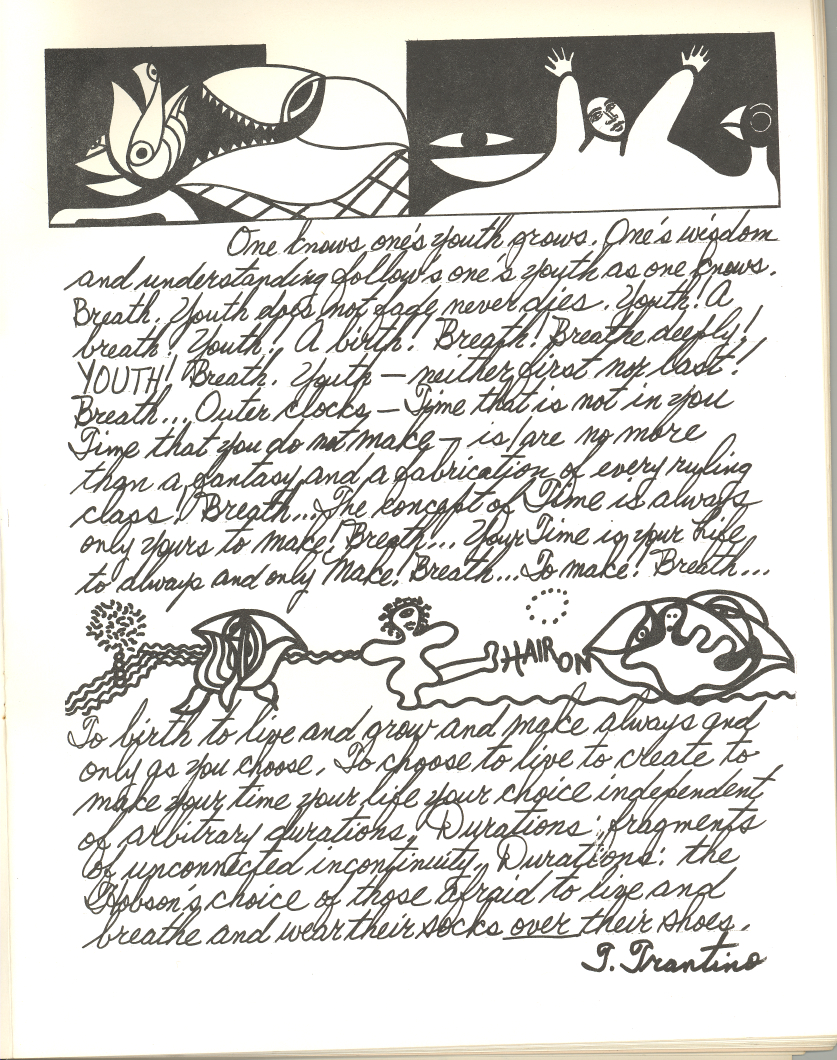 One knows one's youth grows. One's wisdom
and understanding follow's one's youth as one knows.
Breath. Youth does not fade never dies. Youth! A
breath! Youth! A birth! Breath! Breathe deeply!
YOUTH! Breath. Youth — neither first nor last!
Breath... Outer clocks — Time that is not in you
Time that you do not make — is/are no more
than a fantasy and a fabrication of every ruling
class! Breath... The concept of Time is always
only yours to make! Breath... Your Time is your Life
to always and only Make! Breath... To make! Breath...
HAIR ON
To birth to live and grow and make always and
only as you choose. To choose to live to create to
make your time your life your choice independent
of arbitrary durations. Durations: fragments
of unconnected incontinuity. Durations: the
Hobson's choice of those afraid to live and
breathe and wear their socks over their shoes.
T. Trantino